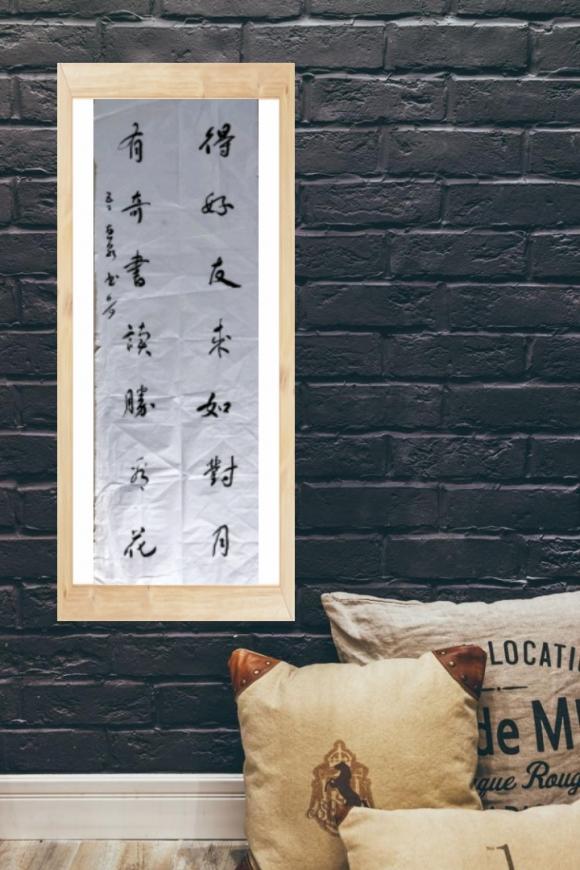 得好友来如對月
有奇書讀勝看花
LOCATI
de M
que Roug